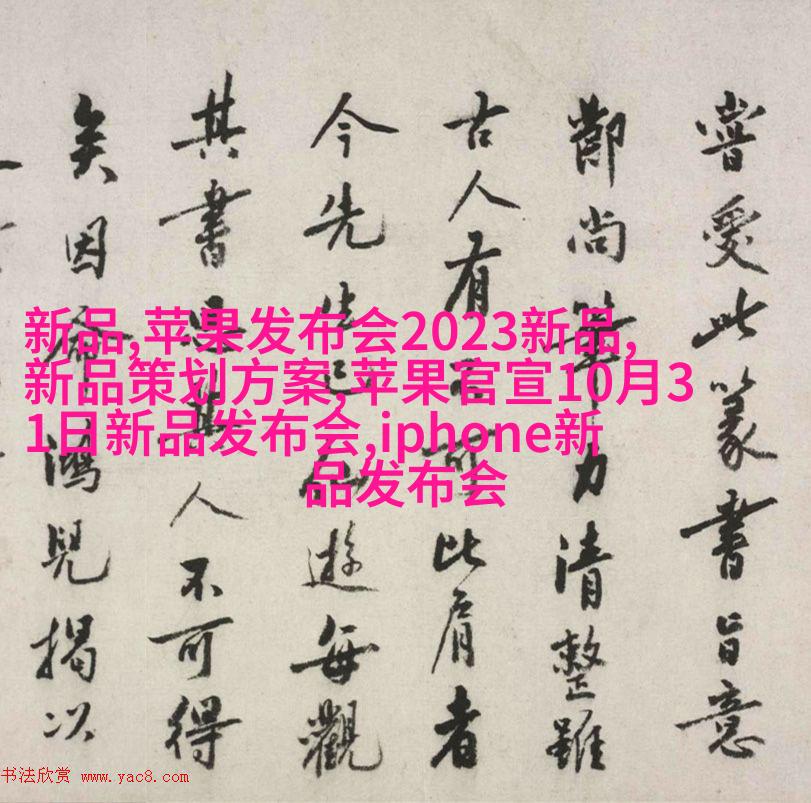 新品,苹果发布会2023新品,
新品策划方案,苹果官宣10月3
1日新品发布会,iphone新
品发布会
嘗受此篆書旨意
尚筆力清整雖
古人有不可比肩者
今先生已仙遊每觀
其書其人不可得
矣因鴻兒揭以
书法欣赏 www.yac8.com